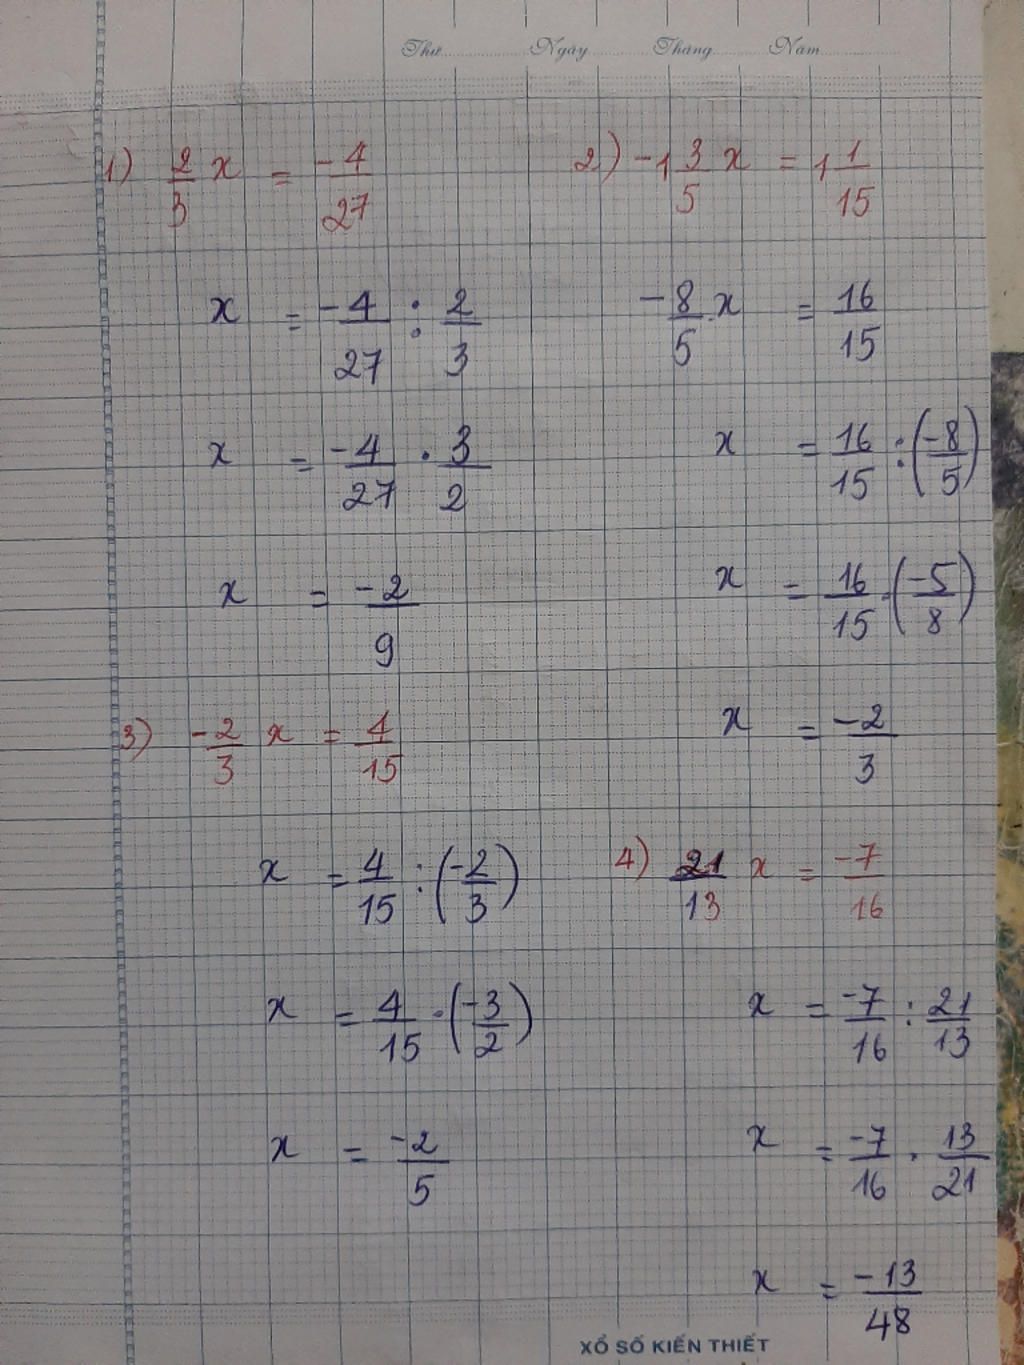 Thứ Ngày Tháng Năm
1) 2/3 x = -4/27
x = -4/27 : 2/3
x = -4/27 . 3/2
x = -2/9
2) -1 3/5 x = 1 1/15
-8/5 . x = 16/15
x = 16/15 : (-8/5)
x = 16/15 . (-5/8)
x = -2/3
3) -2/3 x = 4/15
x = 4/15 : (-2/3)
x = 4/15 . (-3/2)
x = -2/5
4) 21/13 x = -7/16
x = -7/16 : 21/13
x = -7/16 . 13/21
x = -13/48
XỔ SỐ KIẾN THIẾT